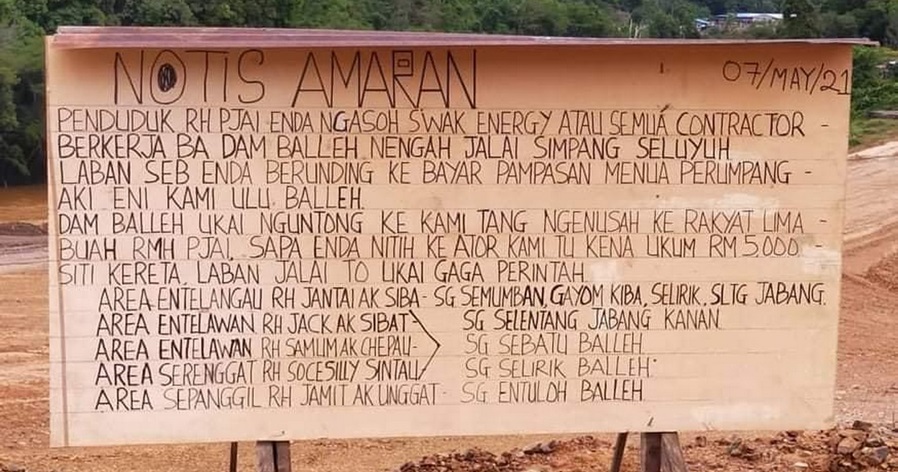 NOTIS AMARAN
07/MAY/21
PENDUDUK RH PJAI ENDA NGASOH SWAK ENERGY ATAU SEMUA CONTRACTOR -
BERKERJA BA DAM BALLEH NENGAH JALAI SIMPANG SELUYUH
LABAN SEB ENDA BERUNDING KE BAYAR PAMPASAN MENUA PERUMPANG -
AKI ENI KAMI ULU BALLEH.
DAM BALLEH UKAI NGUNTONG KE KAMI TANG NGENUSAH KE RAKYAT LIMA -
BUAH RMH PJAI, SAPA ENDA NITIH KE ATOR KAMI TU KENA UKUM RM 5,000 -
SITI KERETA, LABAN JALAI TO UKAI GAGA PERINTAH
AREA ENTELANGAU RH JANTAI AK SIBA - SG SEMUMBAN, GAYOM KIBA, SELIRIK, SLTG JABANG.
AREA ENTELAWAN RH JACK AK SIBAT - SG SELENTANG JABANG KANAN
AREA ENTELAWAN RH SAMLIM AK CHEPAU - SG SEBATU BALLEH
AREA SERENGGAT RH SOCESILLY SINTAU SG SELIRIK BALLEH
AREA SEPANGGIL RH JAMIT AK UNGGAT - SG ENTULOH BALLEH